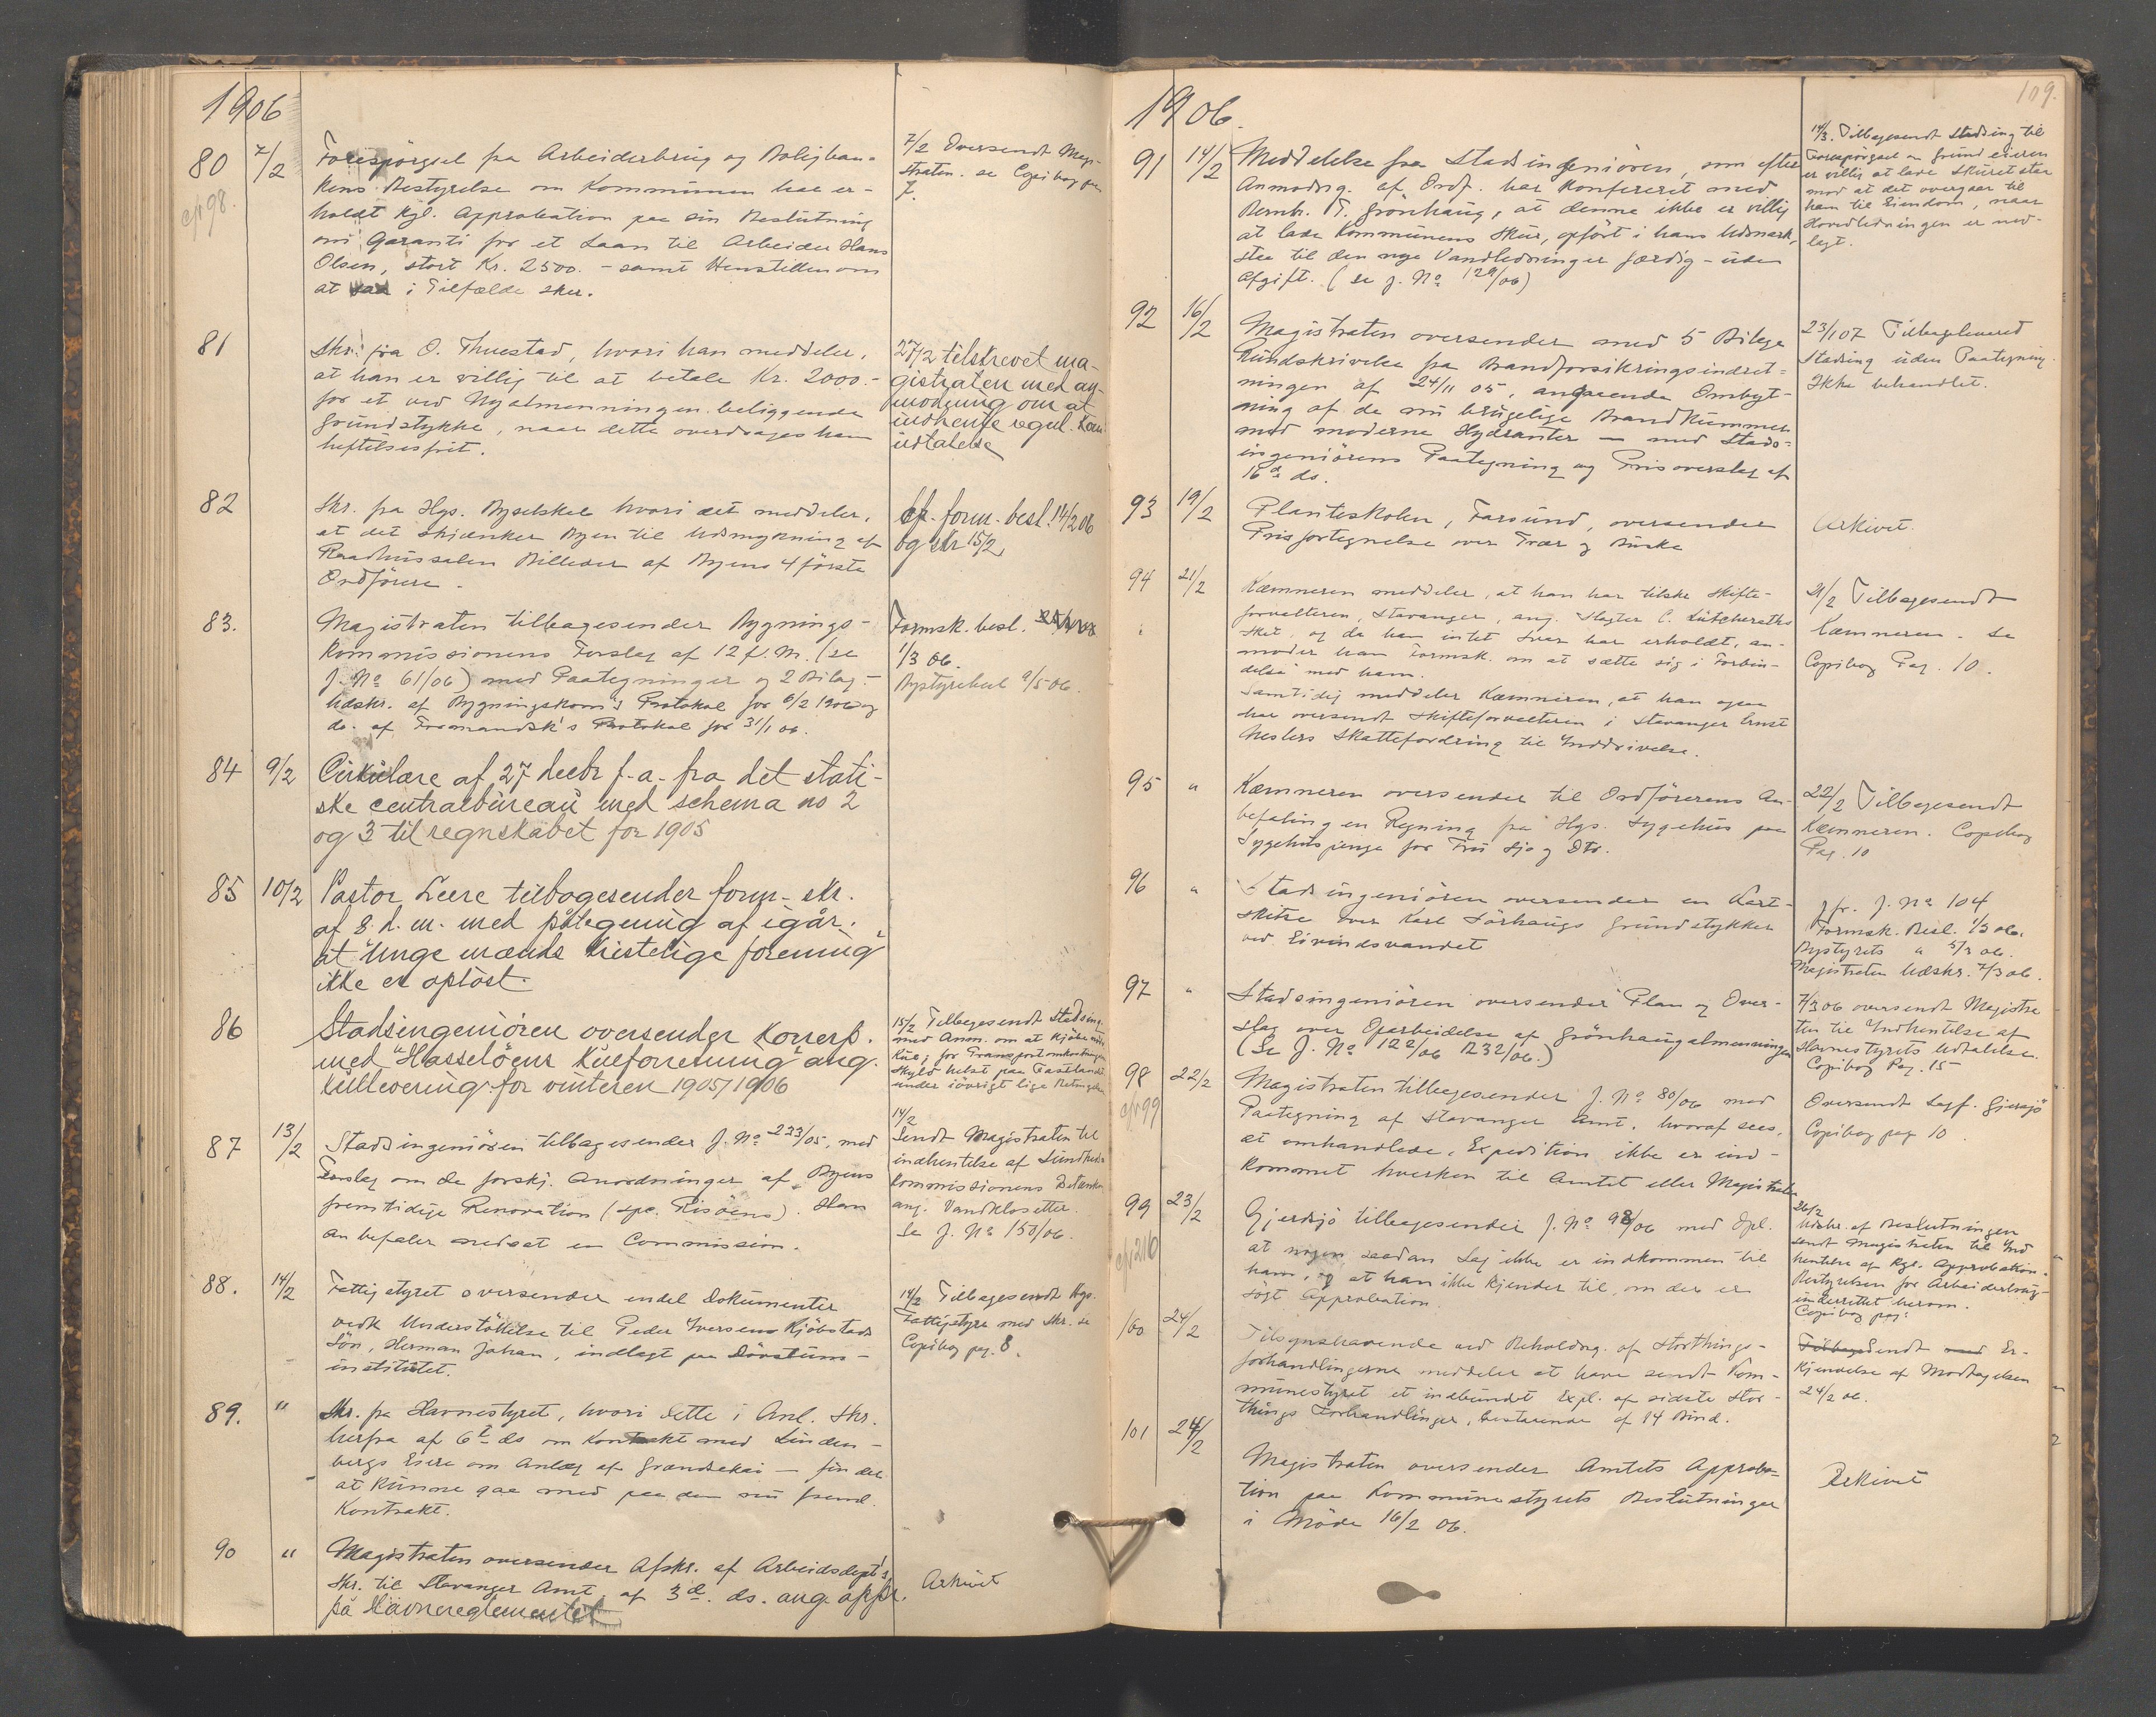 1906
80 7/2 Forespörgsel fra Arbeiderbrug og Boligban-
cfr 98.
kens Bestyrelse om Kommunen har er-
holdt Kgl. Approbation paa sin Beslutning
om Garanti for et Laan til Arbeider Hans
Olsen, stort Kr. 2500.- samt Henstillen om
at saa i Tilfælde sker.
7/2 Oversendt Magi-
straten. se Copibog pag
7.
81 Skr. fra O. Thuestad, hvori han meddeler,
at han er villig til at betale Kr. 2000.-
for et ved Nyalmenningen beliggende
Grundstykke, naar dette overdrages ham
heftelsesfrit.
27/2 tilskrevet ma-
gistraten med an-
modning om at
indhente regul. Kom
udtalelse
82 Skr. fra Hgs. Byselskab hvori det meddeler,
at det skjænker Byen til Udsmykning af
Raadhussalen Billeder af Byens 4 förste
Ordförere.
cfr. form. besl. 14/2 06
og skr 15/2
83. Magistraten tilbagesender Bygnings-
kommissionens Forslag af 12 f.M. (se
J. No 61/06) med Paategninger og 2 Bilag:-
Udskr. af Bygningskom's Protokol for 6/2 1906 og
do. af Formandsk's Protokol for 31/1 06.
Formsk. besl.
1/3 06.
Bystyrebesl 9/5 06.
84 9/2 Cirkulære af 27 decbr f.a. fra det stati-
ske centralbureau med schema no 2
og 3 til regnskabet for 1905
85 10/2 Pastor Leere tilbagesender form-skr.
af 8. d.m. med påtegning af igår,
at "Unge mænds kristelige forening"
ikke er oplöst.
86 Stadsingeniören oversender Korresp.
med "Hasselöens Kulforretning" ang.
Kullevering for vinteren 1905/1906
15/2 Tilbagesendt Stadsing
med Anm. om at kjöbe
Kul, for Transportomkostninger
Skyld helst paa Fastlandet
under iövrigt lige Betingelser
87 13/2 Stadsingeniören tilbagesender J. No 223/05, med
Forslag om de forskj. Anordninger af Byens
fremtidige Renovation (spc. Risöens). Han
anbefaler nedsat en Commission.
14/2
Sendt Magistraten til
indhentelse af Sundheds
kommissionens Betænkn
ang. Vandklosetter.
Se J. No 150/06.
88. 14/2 Fattigstyret oversender endel Dokumenter
vedk Understöttelse til Peder Iversens Kjöbstads
Sön, Herman Johan, indlagt paa Dövstum-
institutet.
14/2 Tilbagesendt Hgs.
Fattigstyre med Skr. se
Copibog pag. 8.
89. " Skr. fra Havnestyret, hvori dette i Anl. Skr.
herfra af 6te ds om Kontrakt med Linden-
bergs Eiere om Anlæg af Grændsekai - finder
at kunne gaa med paa den nu freml.
Kontrakt.
90 " Magistraten oversender Afskr. af Arbeidsdept's
Skr. til Stavanger Amt af 3de. ds. ang. appr.
på Havnereglementet
Arkivet
109.
1906.
91 14/2 Meddelelse fra Stadsingeniören, om efter
Anmodng. af Ordf. har Konfereret med
Bernh. T. Grönhaug, at denne ikke er villig
at lade Kommunens Skur, opfört i hans Udmark,
staa til den nye Vandledninger færdig - uden
Afgift. (se J. No 129/06)
14/3. Tilbagesendt Stadsing til
Forespörgsel om Grundeieren
er villig at lade Skuret staa
mod at det overgaar til
ham til Eiendom, naar
Hovedledningen er ned-
lagt.
92 16/2 Magistraten oversender med 5 Bilage
Rundskrivelse fra Brandforsikringsindret-
ningen af 24/11 05, angaaende Ombyt-
ning af de nu brugelige Brandkummer
med moderne Hydranter - med Stads-
ingeniörens Paategning og Prisoverslag af
16de ds.
23/1 07 Tilbageleveret
Stadsing uden Paategning.
Ikke behandlet.
93 19/2 Planteskolen, Farsund, oversender
Prisfortegnelse over Trær og Buske
Arkivet.
94 21/2 Kæmneren meddeler, at han har tilskr Skifte-
forvalteren, Stavanger, ang. Slagter C. Lütcheraths
Skat, og da han intet Svar har erholdt, an-
moder han Formsk. om at sætte sig i Forbin-
delse med ham.
Samtidig meddeler Kæmneren, at han ogsaa
har oversendt Skifteforvalteren i Stavanger Ernst
Neslers Skattefordring til Inddrivelse.
21/2 Tilbagesendt
Kæmneren. Se
Copibog Pag. 10.
95 " Kæmneren oversender til Ordförerens An-
befaling en Regning fra Hgs. Sygehus paa
Sygehuspenge for Fru Sjo og Dtr.
22/2 Tilbagesendt
Kæmneren. Copibog
Pag. 10
96 " Stadsingeniören oversender en Kart-
skitse over Karl Sörhaugs Grundstykker
ved Eivindsvandet
jfr. J. No 104
Formsk. Besl. 1/3 06.
Bystyrets " 5/3 06.
Magistraten Udskr. 7/3 06.
97 " Stadsingeniören oversender Plan og Over-
slag over Oparbeidelse af Grönhaugalmenningen
(Se J. No 122/06 & 232/06.)
7/3 06 oversendt Magistra
ten til Indhentelse af
Havnestyrets Udtalelse.
Copibog Pag. 15
98 22/2 Magistraten tilbagesender J. No 80/06 med
cfr 99
Paategning af Stavanger Amt, hvoraf sees,
at omhandlede Expedition ikke er ind-
kommet hverken til Amtet eller Magistraten
Oversendt Sagf. Gjersjö
Copibog pag 10.
99 23/2 Gjersjö tilbagesender J. No 98/06 med Opl.
cfr 216
at nogen saadan Sag ikke er indkommen til
ham, og at han ikke kjender til, om der er
sögt Approbation.
26/2
Udskr. af Beslutningen
sendt Magistraten til Ind
hentelse af Kgl. Approbation.
Bestyrelsen for Arbeiderbrug-
underrettet herom.
Copibog pag:
100 24/2 Tilsynshavende ved Beholdng. af Storthings-
forhandlingerne meddeler at have sendt Kom-
munestyret et indbundet Expl. af sidste Stor-
things Forhandlinger, bestaaende af 14 Bind.
Tilbagesendt med Er-
kjendelse af Modtagelsen
24/2 06.
101 24/2
Magistraten oversender Amtets Approba-
tion paa Kommunestyrets Beslutninger
i Möde 16/2 06.
Arkivet